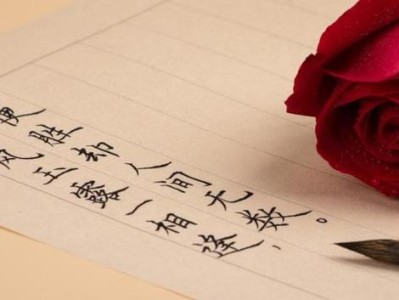 风玉露一相逢，
便胜却人间无数。